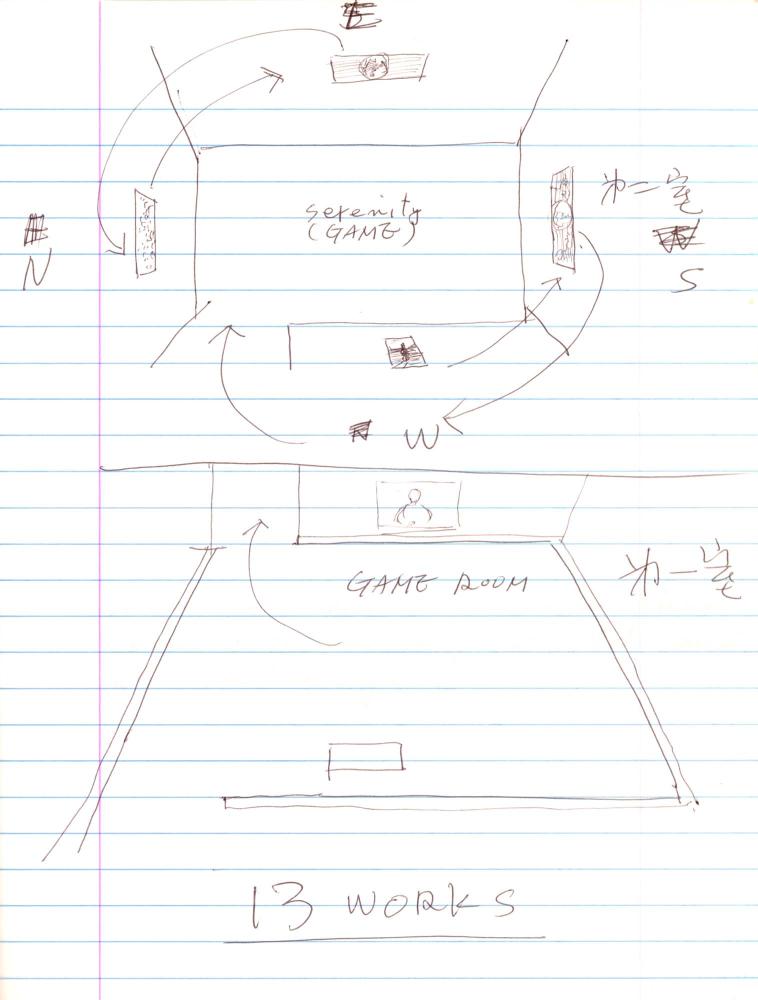 第二室
serenity
(GAME)
N
S
W
GAME ROOM
第一室
13 WORKS